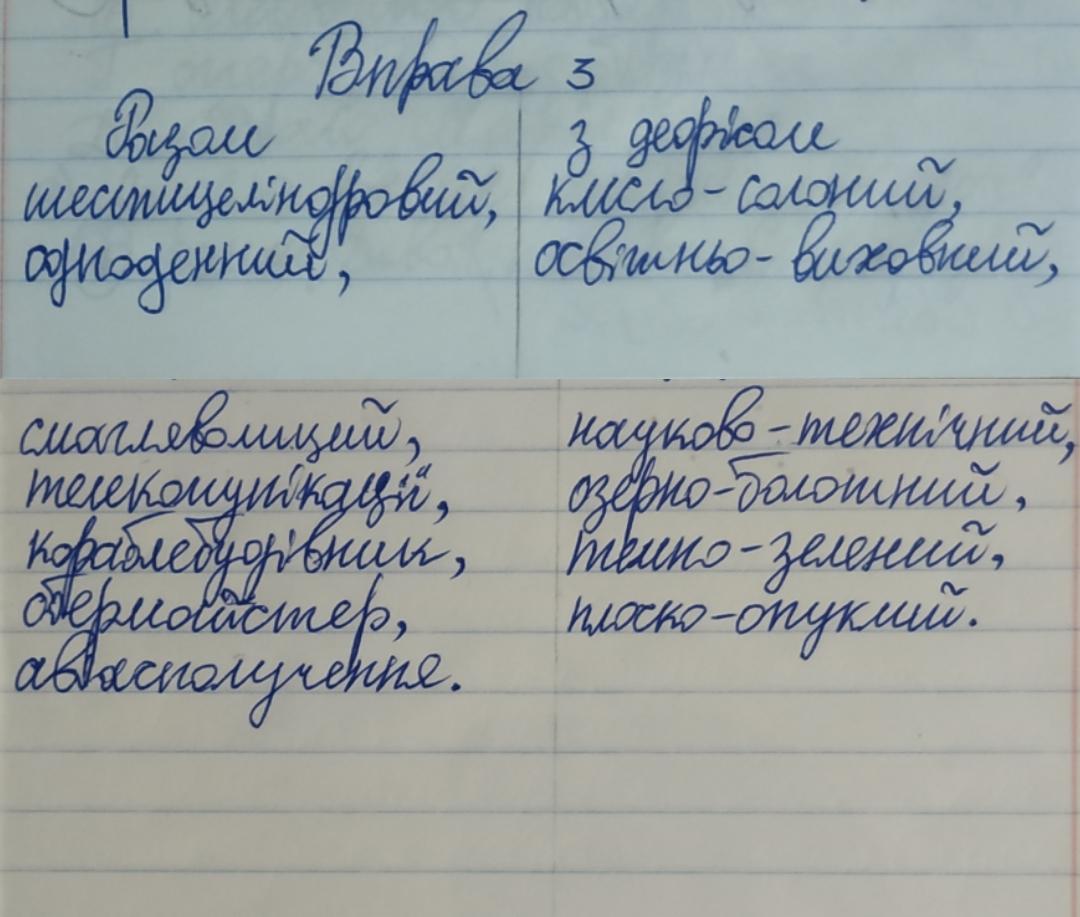 Вправа 3
Разом з дефісом
шестицеліндровий, кисло-солоний,
одноденний, освітньо-виховний,
смагляволиций, науково-технічний,
телекомунікації, озерно-болотний,
кораблебудівник, темно-зелений,
обермайстер, плоско-опуклий.
авіасполучення.